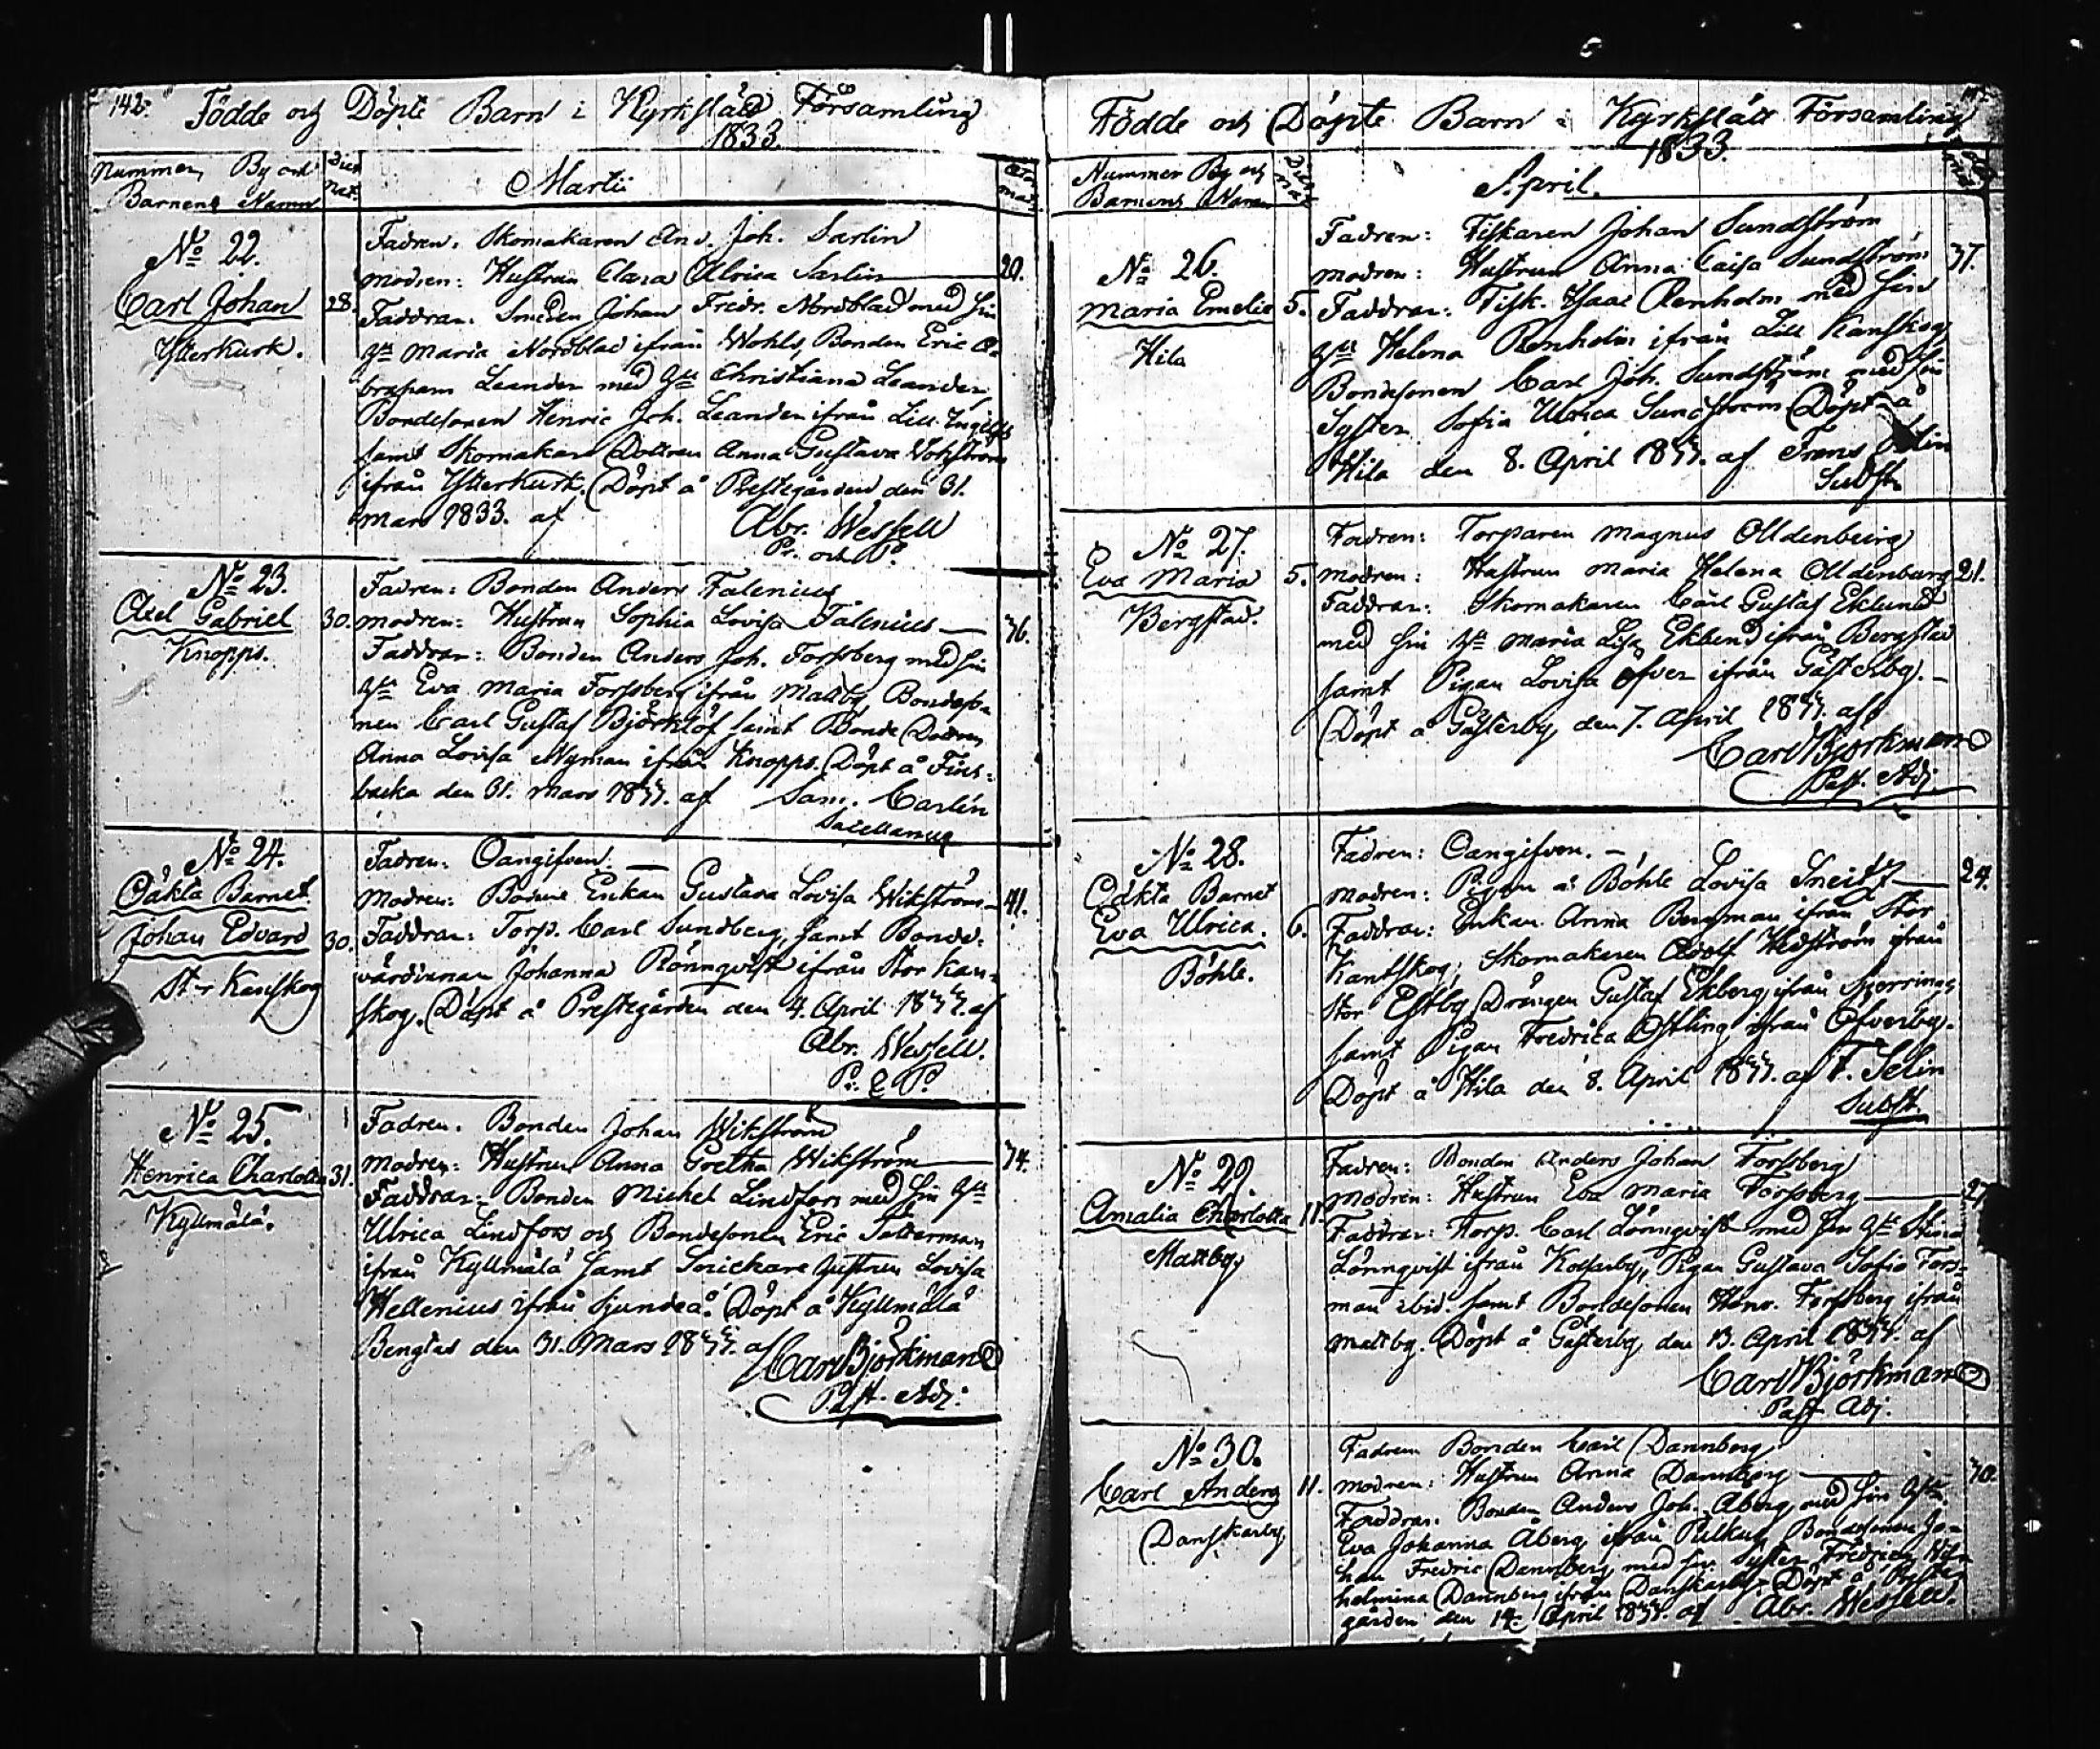 142.
Födde och Döpte Barn i Kyrkslätt Församling
1833
Nummer, By och
Barnens Namn
Dies
nat.
Martii
Ætas
mat.
No 22.
Carl Johan
Ytterkurk.
28.
Fadren: Skomakaren And. Joh. Sarlin
modren: Hustrun Clara Ulrica Sarlin
20.
Faddrar: Smeden Johan Fredr. Nordblad med sin
Maria Nordblad ifrån Wohls, Bonden Eric A-
braham Leander med Christiana Leander,
Bondesonen Henric Joh. Leander ifrån Lill Ingels
samt Skomakare Dottren Anna Gustava
ifrån Ytterkurk. Döpt å Prestegården den 31.
mars 1833. af
Abr. Wessell
Pr. och P.
No 23.
Axel Gabriel
Knopps.
30.
Fadren: Bonden Anders Falenius
modren: Hustrun Sophia Lovisa Falenius
36.
Faddrar: Bonden Anders Joh. Forssberg med sin
Eva Maria Forssberg ifrån Mattby, Bondeso-
nen Carl Gustaf Björklöf samt Bonde Dottren
Anna Lovisa Nyman ifrån Knopps. Döpt å Fins-
backa den 31. mars 1833. af Sam. Carlin
Sacellanus
No 24.
Oäkta Barnet
Johan Edvard
St-r Kanskog
30.
Fadren: Oangifven.
Modren: Bonde Enkan Gustava Lovisa Wikström
41.
Faddrar: Torp. Carl Sundberg, samt Bonde-
värdinnan Johanna Rönnqvist ifrån Stor Kan-
skog. Döpt å Prestegården den 4. April 1833. af
Abr. Wessell.
Pr. & P.
No 25.
Henrica Charlotta
Kyllmälä.
31.
Fadren: Bonden Johan Wikström
modren: Hustrun Anna Gretha Wikström
34.
Faddrar: Bonden Michel Lindfors med sin
Ulrica Lindfors och Bondesonen Eric
ifrån Kyllmälä samt Snickare hustrun Lovisa
Hellenius ifrån Sjundeå. Döpt å Kyllmälä
Bengtas den 31. Mars 1833. af
Carl Björkman
Past. Adj.
Födde och Döpte Barn i Kyrkslätt Församling
1833.
Nummer By och
Barnens Namn
Dies
nat.
April.
No 26.
Maria Emelie
Hila
5.
Fadren: Fiskaren Johan Sundström
modren: Hustrun Anna Caisa Sundström
37.
Faddrar: Fisk. Isaac Renholm med sin
Helena Renholm ifrån Lill Kanskog
Bondesonen Carl Joh. Sundström med sin
Syster Sofia Ulrica Sundström Döpt å
Hila den 8. April 1833. af Frans Selin
Subst.
No 27.
Eva Maria
Bergstad.
5.
Fadren: Torparen Magnus Olldenburg
modren: Hustrun Maria Helena Olldenburg
21.
Faddrar: Skomakaren Carl Gustaf Eklund
med sin Maria Lisa Eklund ifrån Bergstad
samt Pigan Lovisa Öfver ifrån Gästerby.
Döpt å Gästerby den 7. April 1833. af
Carl Björkman
Past. Adj.
No 28.
Oäkta Barnet
Eva Ulrica.
Böhle.
6.
Fadren: Oangifven.
modren: Pigan å Böhle Lovisa
24.
Faddrar: Enkan Anna Bergman ifrån Stor
Kantskog, Skomakaren Adolf Hedström ifrån
Stor Estby, Drängen Gustaf Ekberg ifrån Sperrings
samt Pigan Fredrica Östling ifrån Öfverby.
Döpt å Hila den 8. April 1833. af F. Selin
Subst.
No 29.
Amalia Charlotta
Mattby
11.
Fadren: Bonden Anders Johan Forssberg
modren: Hustrun Eva Maria Forssberg
Faddrar: Torp. Carl Lönnqvist med sin Stina
Lönnqvist ifrån Kolsarby, Pigan Gustava Sofia Fors-
man ibid. samt Bondesonen Henr. Forssberg ifrån
Mattby. Döpt å Gästerby den 13. April 1833. af
Carl Björkman
Past. Adj.
No 30.
Carl Anders
Danskarby
11.
Fadren Bonden Carl Dannberg
modren: Hustrun Anna Dannberg
30.
Faddrar: Bonden Anders Joh. Åberg med sin
Eva Johanna Åberg ifrån Bondesonen Jo-
han Fredric Dannberg med sin Syster Fredrica Wil-
helmina Dannberg ifrån Danskarby. Döpt å Preste-
gården den 14. April 1833. af Abr. Wessell.